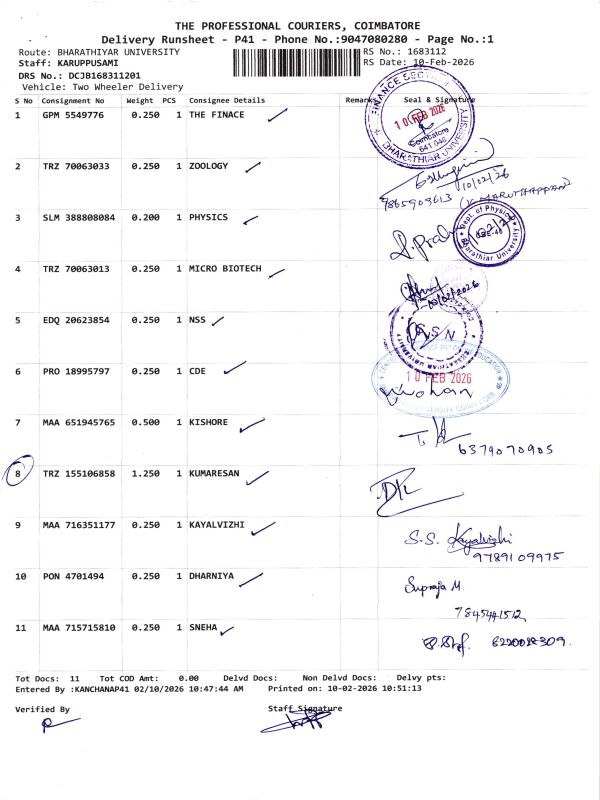 THE PROFESSIONAL COURIERS, COIMBATORE
Delivery Runsheet - P41 - Phone No.:9047080280 - Page No.:1
Route: BHARATHIYAR UNIVERSITY RS No.: 1683112
Staff: KARUPPUSAMI RS Date: 10-Feb-2026
DRS No.: DCJB168311201
Vehicle: Two Wheeler Delivery
S No Consignment No Weight PCS Consignee Details Remarks Seal & Signature
1 GPM 5549776 0.250 1 THE FINACE
FINANCE SECTION
10 FEB 2026
Coimbatore
641 046
BHARATHIAR UNIVERSITY
2 TRZ 70063033 0.250 1 ZOOLOGY
10/02/26
9865909613
3 SLM 388808084 0.200 1 PHYSICS
Dept. of Physics
Bharathiar University
4 TRZ 70063013 0.250 1 MICRO BIOTECH
10/02/2026
5 EDQ 20623854 0.250 1 NSS
BHARATHIAR UNIVERSITY
6 PRO 18995797 0.250 1 CDE
10 FEB 2026
7 MAA 651945765 0.500 1 KISHORE
6379070905
8 TRZ 155106858 1.250 1 KUMARESAN
9 MAA 716351177 0.250 1 KAYALVIZHI
S.S. Kayalvizhi
9789109975
10 PON 4701494 0.250 1 DHARNIYA
Supraja M.
7845441512
11 MAA 715715810 0.250 1 SNEHA
Tot Docs: 11 Tot COD Amt: 0.00 Delvd Docs: Non Delvd Docs: Delvy pts:
Entered By :KANCHANAP41 02/10/2026 10:47:44 AM Printed on: 10-02-2026 10:51:13
Verified By Staff Signature